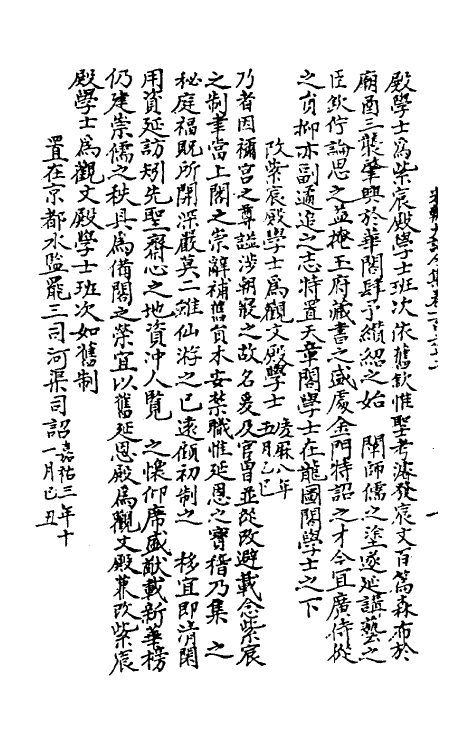 殿學士爲紫宸殿學士班次依舊欽惟聖考濬發宸文百篇森布於
廟酉三襲肇興於華閣肆予纘紹之始 闡師儒之塗遂延講藝之
臣欽佇論思之益掩王府藏書之盛處金門特詔之才今宜廣侍從
之員抑亦副遹追之志特置天章閣學士在龍圖閣學士之下
改紫宸殿學士爲觀文殿學士 慶厤八年五月乙巳
乃者因禰宮之尊謚涉朝嚴之故名爰及官曹並從改避載念紫宸
之制聿當上閣之崇辭補舊員未安禁職惟延恩之寶稽乃集 之
秘庭福既所開深嚴莫二雖仙游之已遠顧初制之 移宜即清閑
用資延訪矧先聖齋心之地資沖人覽 之懷仰席盛猷載新華榜
仍建崇儒之秩具爲備閣之榮宜以舊延恩殿爲觀文殿兼改紫宸
殿學士爲觀文殿學士班次如舊制
置在京都水監罷三司河渠司詔 嘉祐三年十一月己丑